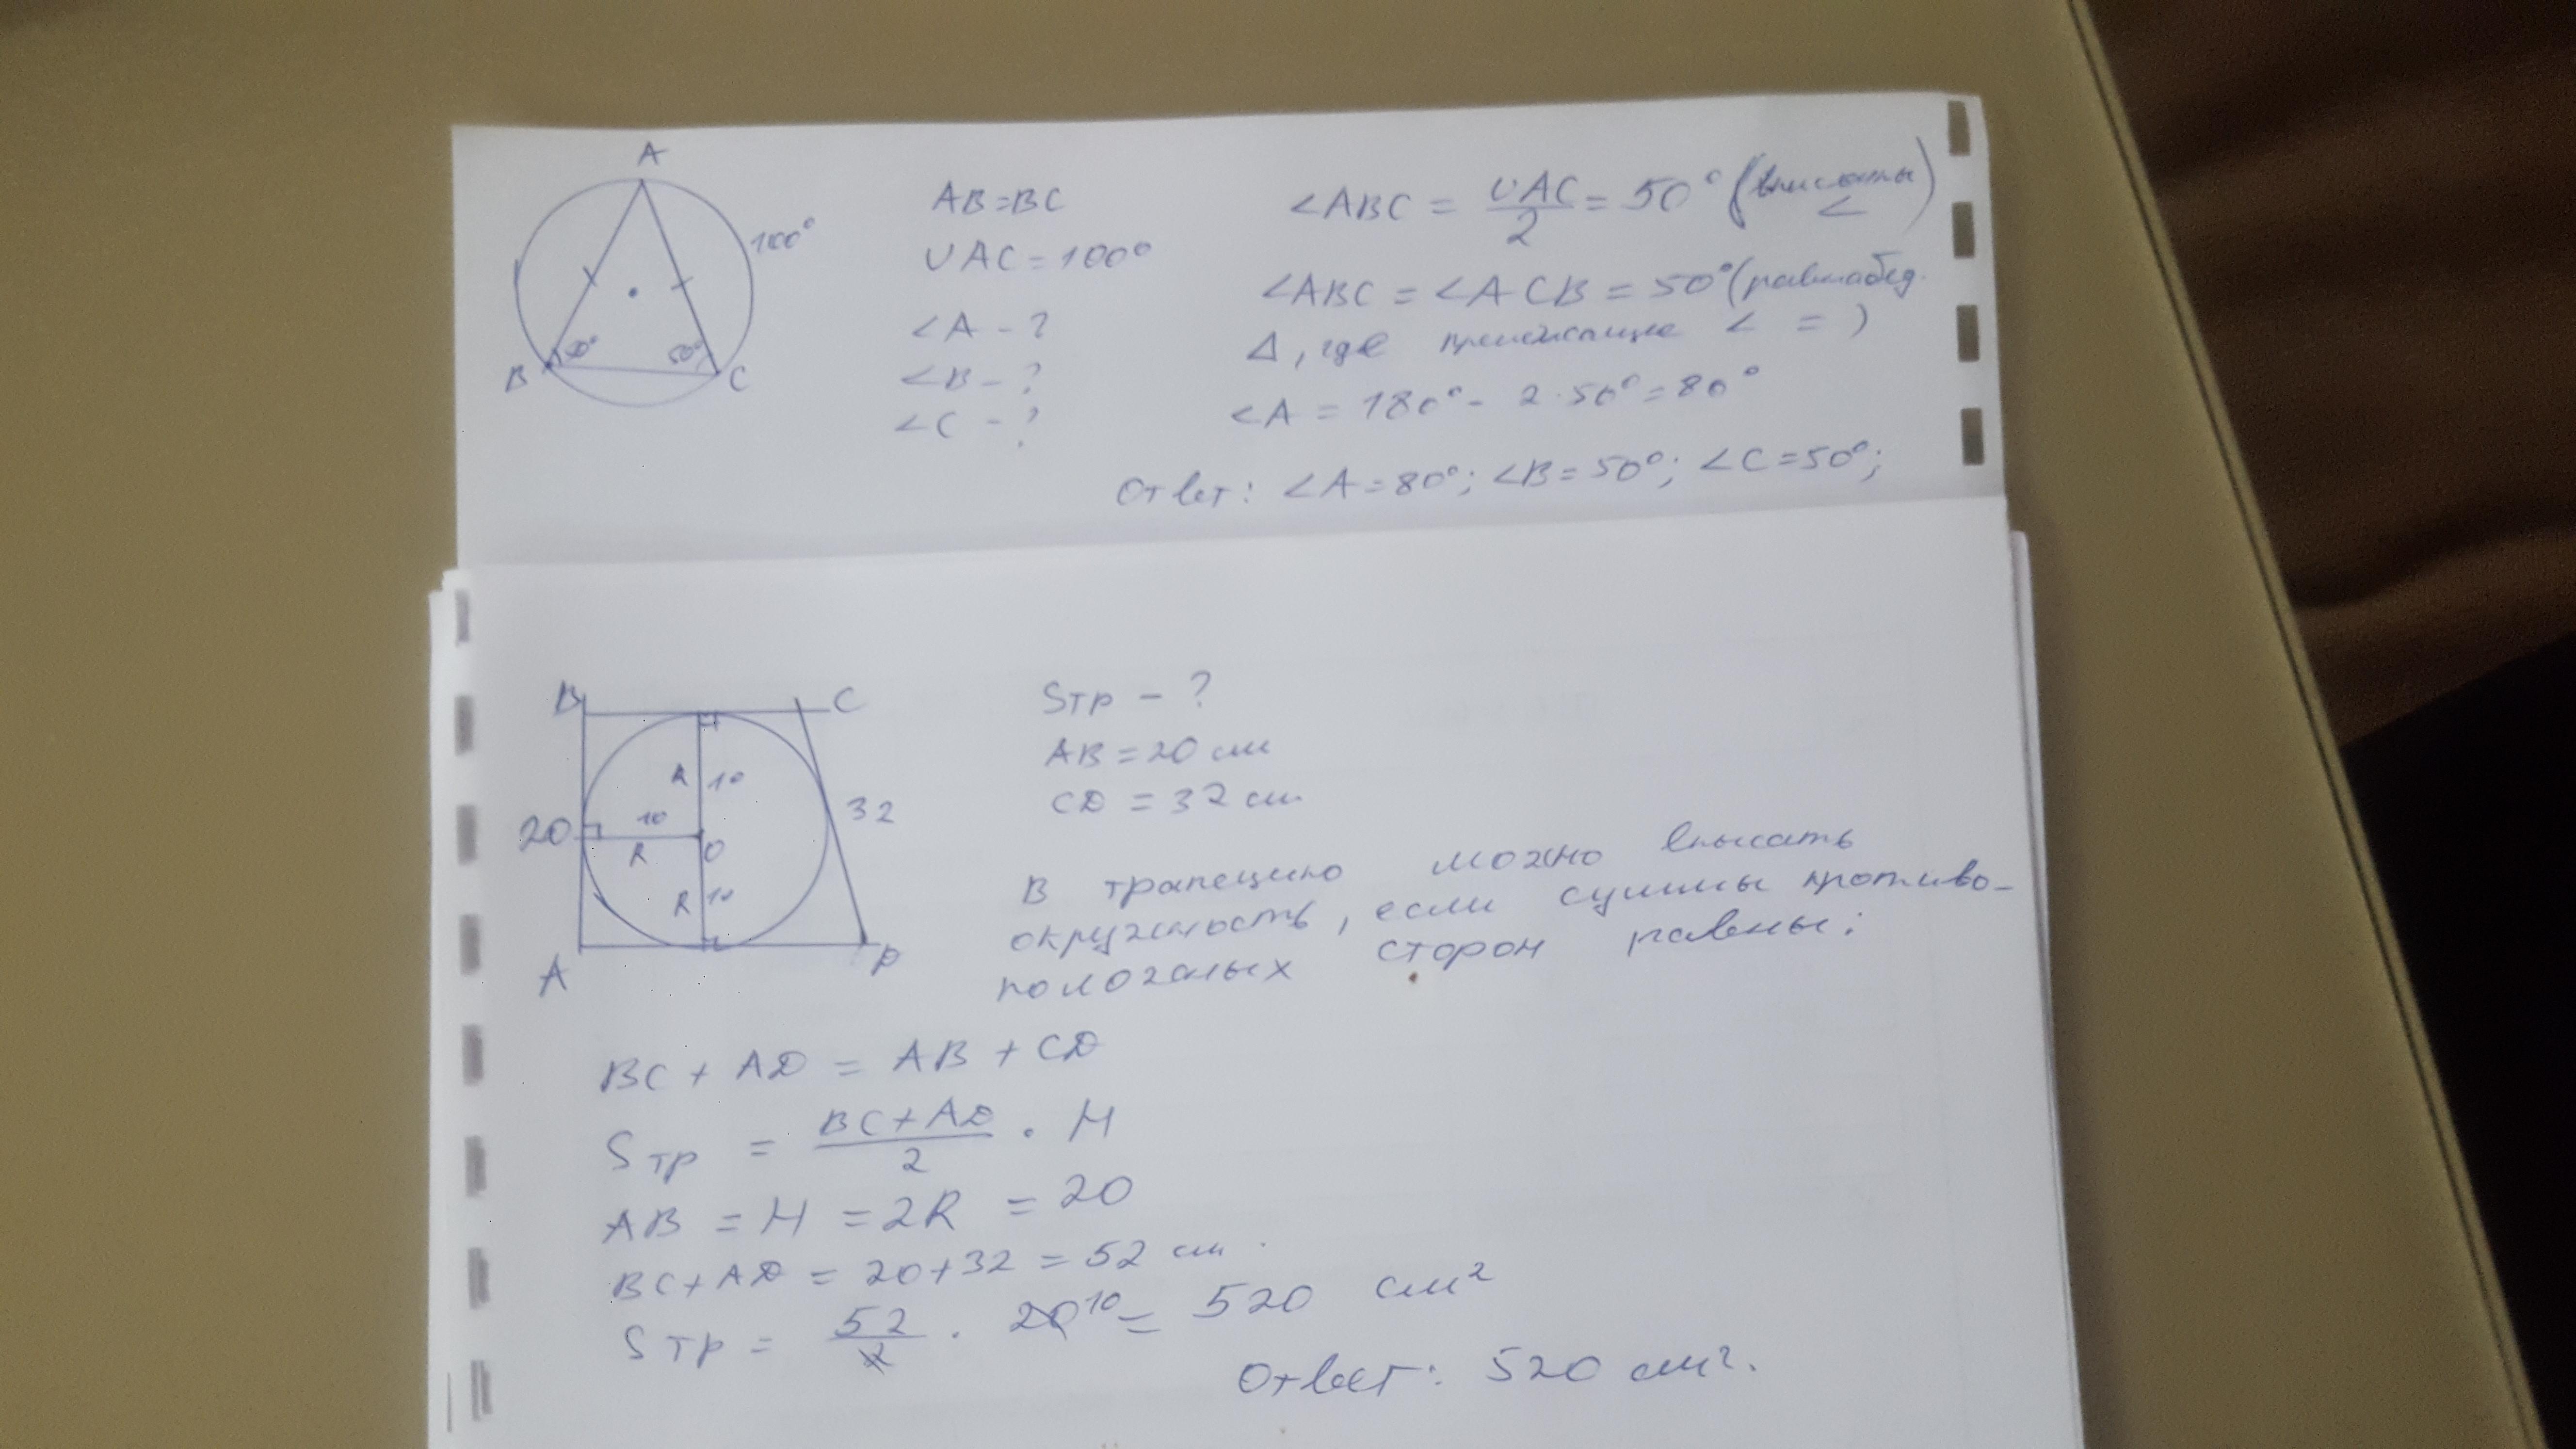 A
100°
50°
50°
B
C
AB=BC
∪AC=100°
∠A-?
∠B-?
∠C-?
∠ABC = ∪AC/2 = 50° (вписаны ∠)
∠ABC = ∠ACB = 50° (равнобед.
Δ, где прилежащие ∠ =)
∠A = 180° - 2·50° = 80°
Ответ: ∠A=80°; ∠B=50°; ∠C=50°;
B
C
R 10
20
10
R
O
32
R 10
A
P
Sтр - ?
AB = 20 см
CD = 32 см
В трапецию можно вписать
окружность, если суммы противо-
положных сторон равны:
BC + AD = AB + CD
Sтр = BC+AD/2 · H
AB = H = 2R = 20
BC+AD = 20+32 = 52 см.
Sтр = 52/2 · 20 10 = 520 см²
Ответ: 520 см².